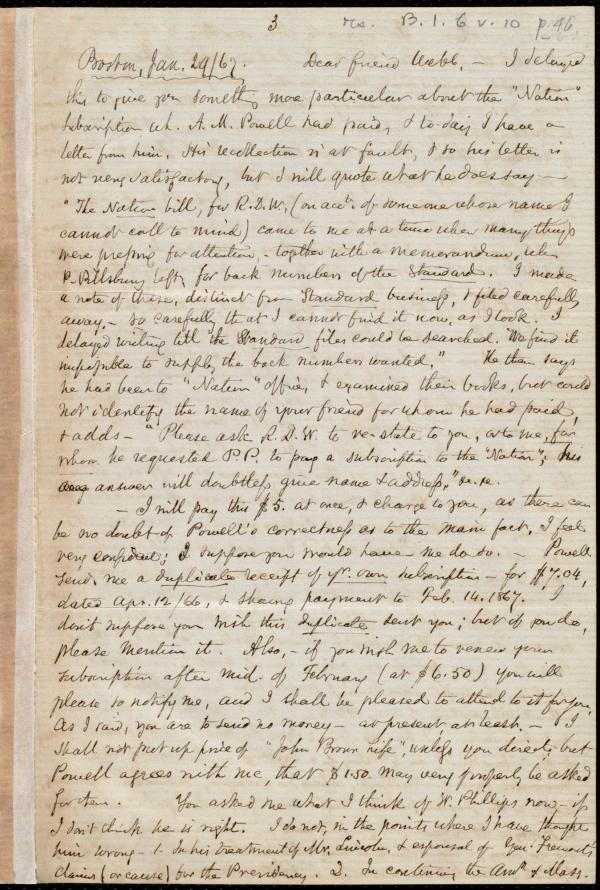 3 Ms. B. 1. 6 v. 10 p. 46
Boston, Jan. 29/67. Dear friend Webb, — I delayed
this to give you something more particular about the "Nation"
subscription wh. A. M. Powell had paid, & to-day I have a
letter from him. His recollection is at fault, & so his letter is
not very satisfactory, but I will quote what he does say —
"The Nation bill, for R. D. W. (on acct. of someone whose name I
cannot call to mind) came to me at a time when many things
were pressing for attention, — together with a memorandum, wh.
P. Pillsbury left, for back numbers of the Standard. I made
a note of these, distinct from Standard business, & filed carefully
away, — so carefully that I cannot find it now, as I look. I
delayed writing till the Standard files could be searched. We find it
impossible to supply the back numbers wanted." He then says
he had been to "Nation" office, & examined their books, but could
not identify the name of your friend for whom he had paid,
& adds — "Please ask R. D. W. to re-state to you, or to me, for
whom he requested P. P. to pay a subscription to the "Nation"; his
answer will doubtless give name & address," &c. &c.
— I will pay this $5. at once, & charge to you, as there can
be no doubt of Powell's correctness as to the main fact, I feel
very confident; I suppose you would have me do so. — Powell
sends me a duplicate receipt of yr. own subscription — for $7.04,
dated Apr. 12/66, & showing payment to Feb. 14. 1867. I
don't suppose you wish this duplicate sent you; but if you do,
please mention it. Also, — if you wish me to renew your
subscription after mid. of February (at $6.50) you will
please so notify me, and I shall be pleased to attend to it for you.
As I said, you are to send no money — at present at least. — I
shall not put up price of "John Brown Life", unless you direct; but
Powell agrees with me, that $1.50 may very properly be asked
for them. You asked me what I think of W. Phillips now — if
I don't think he is right. I do not, in the points where I have thought
him wrong — 1. In his treatment of Mr. Lincoln, & espousal of Gen. Fremont's
claims (or cause) for the Presidency. 2. In continuing the Amn. & Mass.